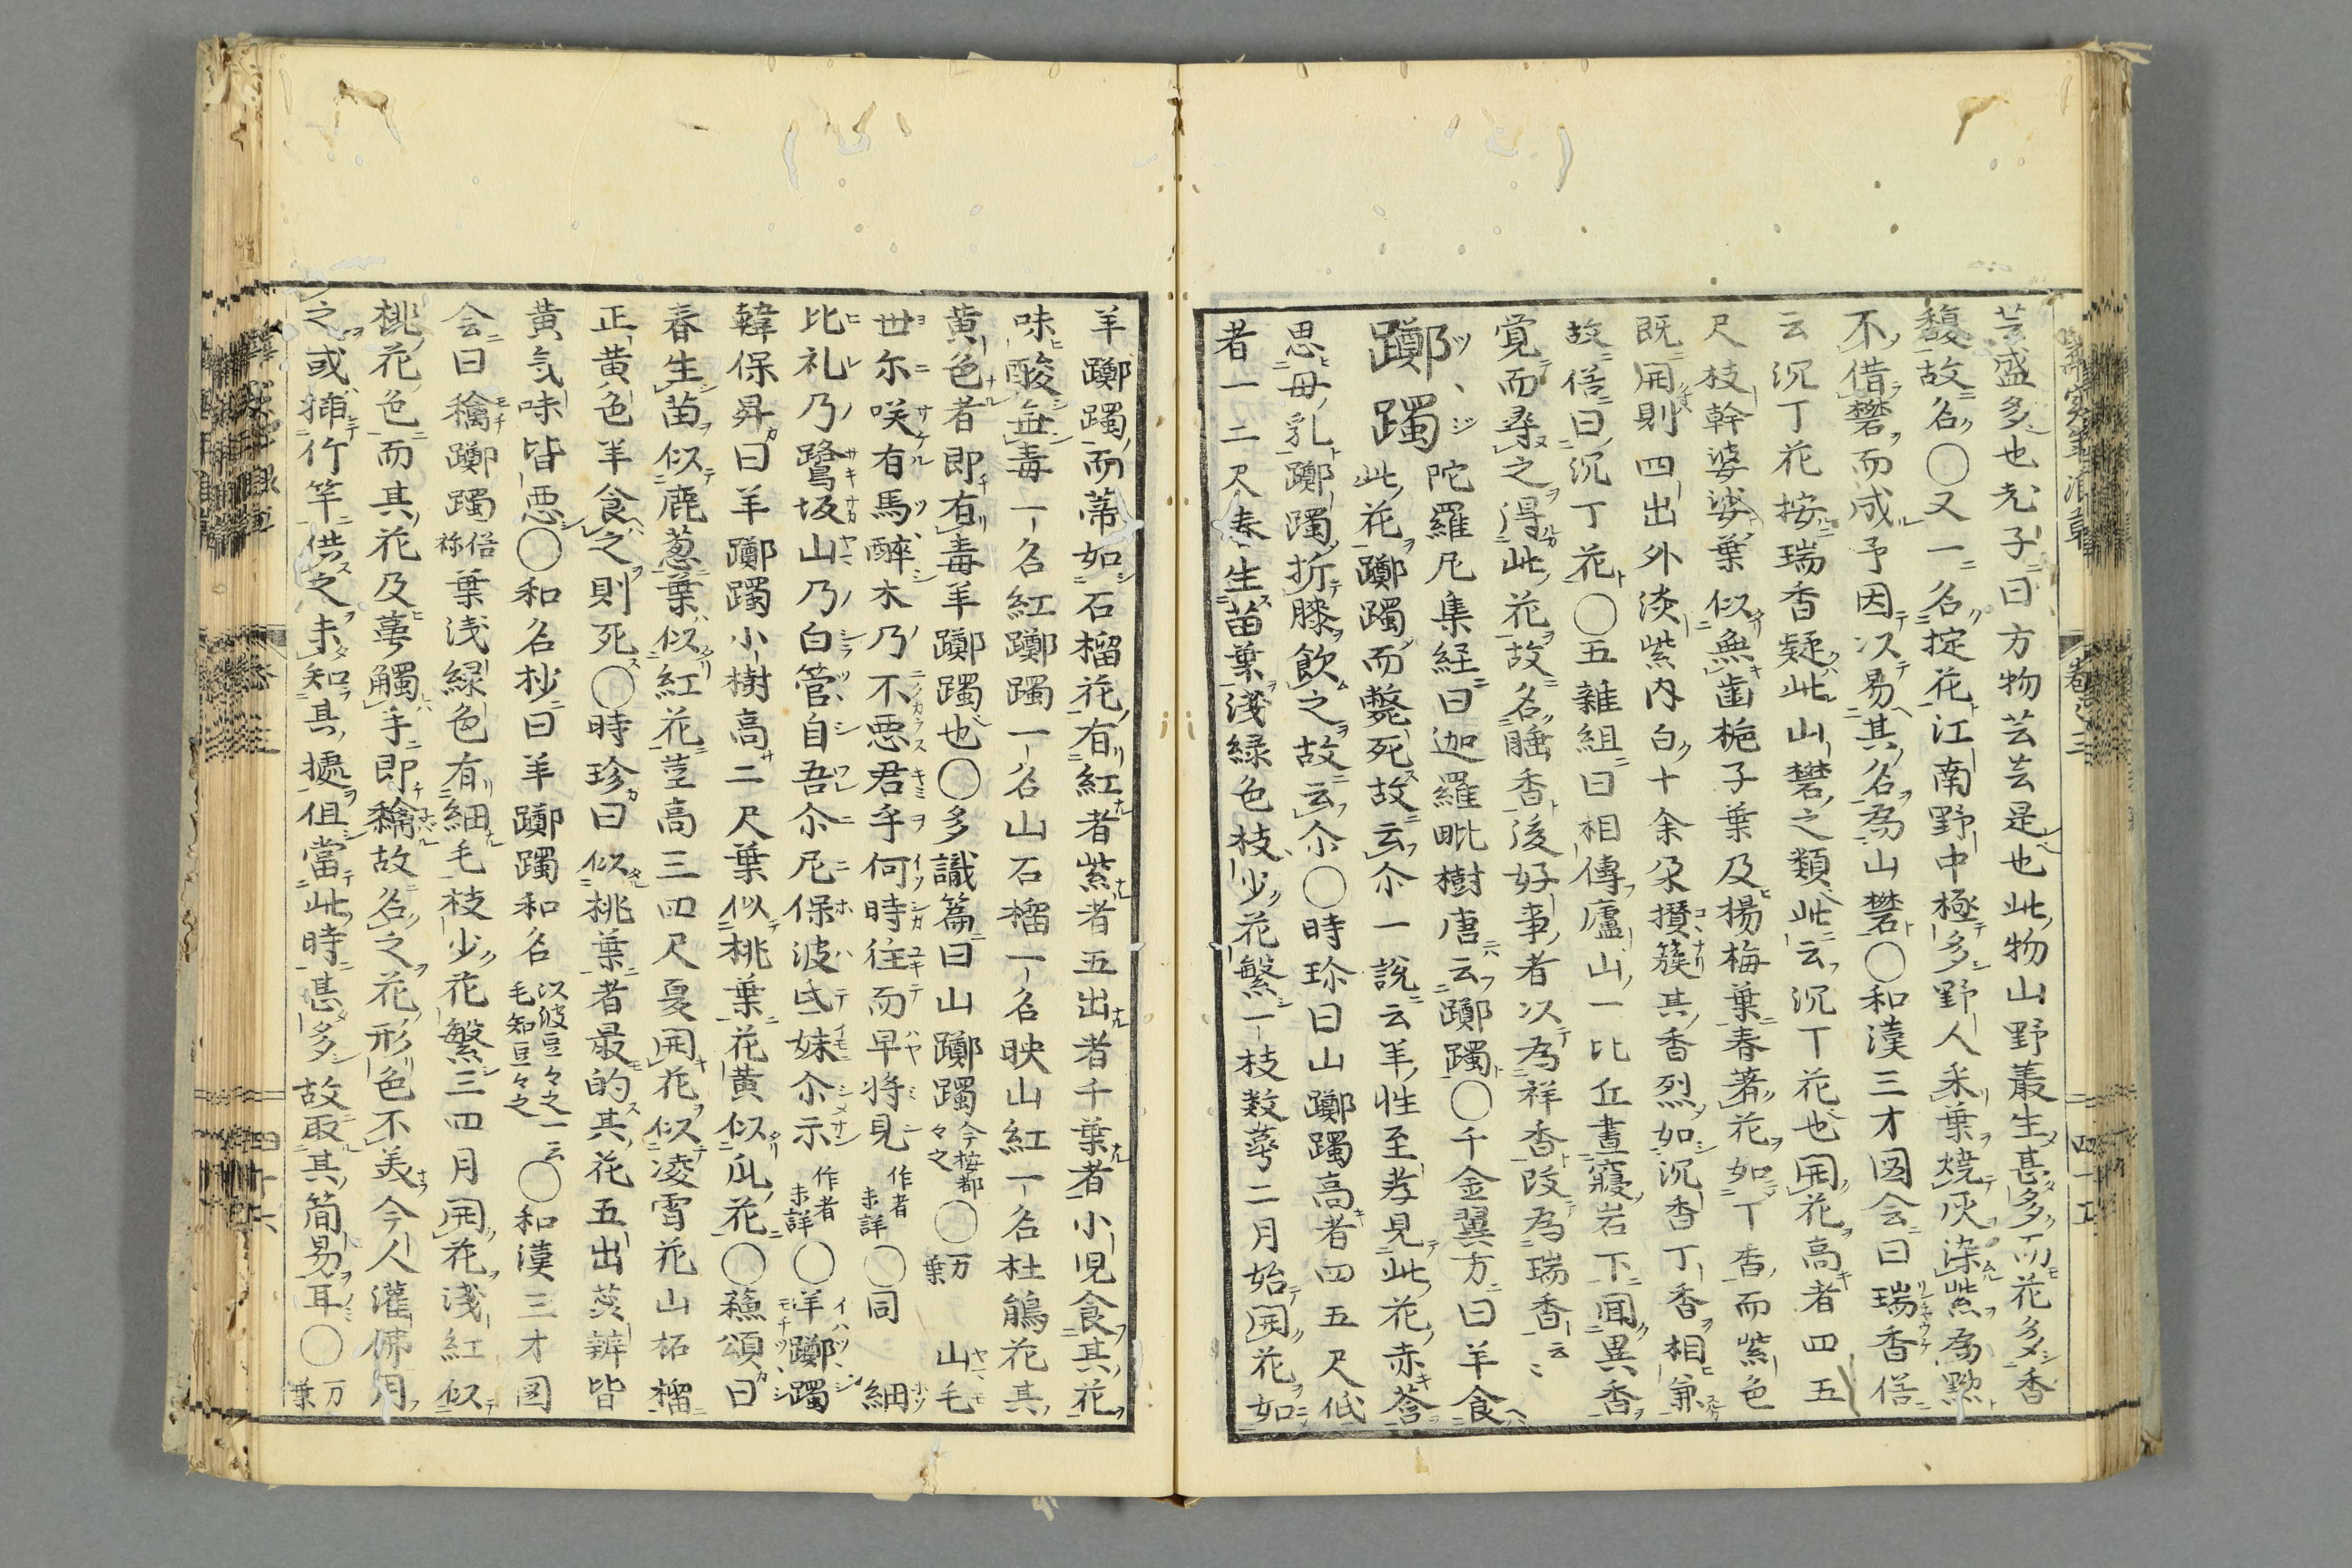 芸盛多也老子曰方物芸芸是也此物山野叢生甚多而花多香
馥故名〇又一名掟花江南野中極多野人釆葉焼灰染紫為黝
不借礬而成予因以易其名為山礬〇和漢三才図会曰瑞香俗
云沉丁花按瑞香疑此山礬之類此云沉丁花也開花高者四五
尺枝幹婆娑葉似無歯梔子葉及楊梅葉春著花如丁香而紫色
既開則四出外淡紫内白十余朶攅簇其香烈如沉香丁香相兼
故俗曰沉丁花〇五雜組曰相傳廬山一比丘晝寢岩下聞異香
覚而尋之得此花故名睡香後好事者以為祥香改為瑞香云
躑躅 陀羅尼集経曰迦羅毗樹唐云躑躅〇千金翼方曰羊食
此花躑躅而斃死故云尒一説云羊性至孝見此花赤莟
思母乳躑躅折膝飲之故云尒〇時珍曰山躑躅高者四五尺低
者一二尺春生苗葉淺緑色枝少花繁一枝数蕚二月始開花如
羊躑躅而蒂如石榴花有紅者紫者五出者千葉者小児食其花
味酸無毒一名紅躑躅一名山石榴一名映山紅一名杜鵑花其
黄色者即有毒羊躑躅也〇多識篇曰山躑躅今按都々之〇万葉 山毛
世尓咲有馬酔木乃不悪君乎何時往而早将見作者未詳〇同 細
比礼乃鷺坂山乃白管自吾尒尼保波氐妹尒示作者未詳〇羊躑躅
韓保昇曰羊躑躅小樹高二尺葉似桃葉花黄似瓜花〇蘓頌曰
春生苗似鹿葱葉似紅花莖高三四尺夏開花似凌雪花山柘榴
正黄色羊食之則死〇時珍曰似桃葉者最的其花五出蕊辨皆
黄気味皆悪〇和名杪曰羊躑躅和名以波豆々之一云毛知豆々之〇和漢三才図
会曰黐躑躅俗称葉浅緑色有細毛枝少花繁三四月開花淺紅似
桃花色而其花及蕚觸手即黐故名之花形色不美今人灌佛月
之或插竹竿供之未知其據但當此時甚多故取其簡易耳〇万葉